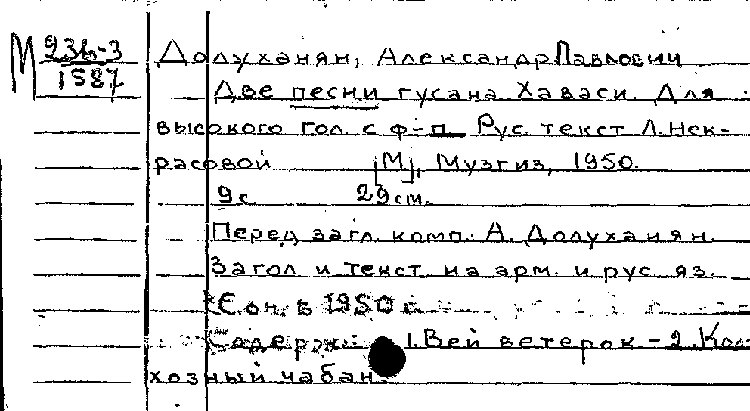 М 931-3
1587
Долуханян, Александр Павлович
Две песни гусана Хаваси. Для
высокого гол. с ф-п. Рус. текст Л. Нек-
расовой [М], Музгиз, 1950.
9 с 29 см.
Перед загл. комп. А. Долуханян.
Загол и текст на арм. и рус яз.
1950
Содерж: 1. Вей ветерок - 2. Кол-
хозный чабан.